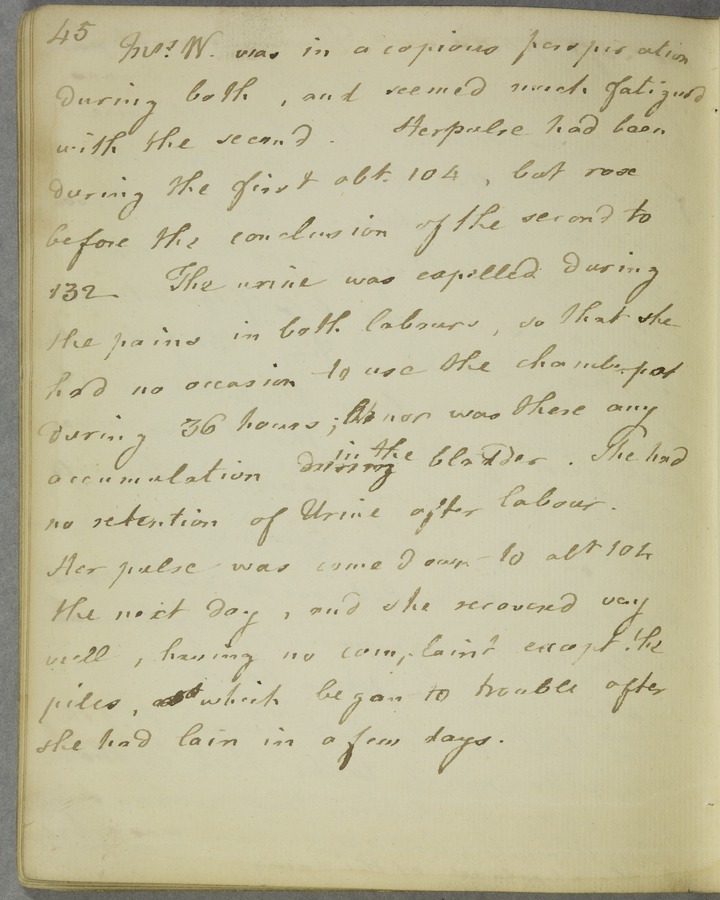 45
Mrs. W. was in a copious perspiration
during both, and seemed much fatigued.
with the second. Her pulse had been
during the first abt. 104, but rose
before the conclusion of the second to
132 The urine was expelled during
the pains in both labours, so that she
had no occasion to use the chamber pot
during 36 hours; nor was there any
accumulation in the bladder. She had
no retention of Urine after labour.
Her pulse was come down to abt 104
the next day, and she recovered very
well, having no complaint except the
piles, which began to trouble after
she had lain in a few days.